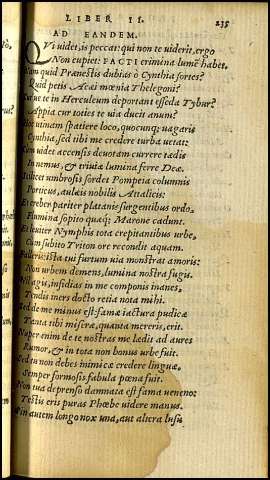 LIBER II. 235
AD EANDEM.
QVi uidet, is peccat: qui non te uiderit, ergo
Non cupiet: FACTI crimina lumē habet.
Nam quid Prænestis dubias ô Cynthia sortes?
Quid petis Aeæi mœnia Thelegoni?
Curue te in Herculeum deportant esseda Tybur?
Appia cur toties te uia ducit anum?
Hoc utinam spatiere loco, quocunq; uagaris
Cynthia, sed tibi me credere turba uetat:
Cum uidet accensis deuotam currere tædis
In nemus, & triuiæ lumina ferre Deæ.
Scilicet umbrosis sordet Pompeia columnis
Porticus, aulæis nobilis Attalicis:
Et creber pariter platanis surgentibus ordo,
Flumina sopito quæq; Marone cadunt.
Et leuiter Nymphis tota crepitantibus urbe,
Cum subito Triton ore recondit aquam.
Falleris: ista tui furtum uia monstrat amoris:
Non urbem demens, lumina nostra fugis.
Nil agis, insidias in me componis inanes,
Tendis iners docto retia nota mihi.
Sed de me minus est: famæ iactura pudicæ
Tanta tibi misera, quanta mereris, erit.
Nuper enim de te nostras me lædit ad aures
Rumor, & in tota non bonus urbe fuit.
Sed tu non debes inimicæ credere linguæ,
Semper formosis fabula pœna fuit.
Non tua deprenso damnata est fama ueneno:
Testis eris puras Phœbe uidere manus.
Sin autem longo nox una, aut altera lusu